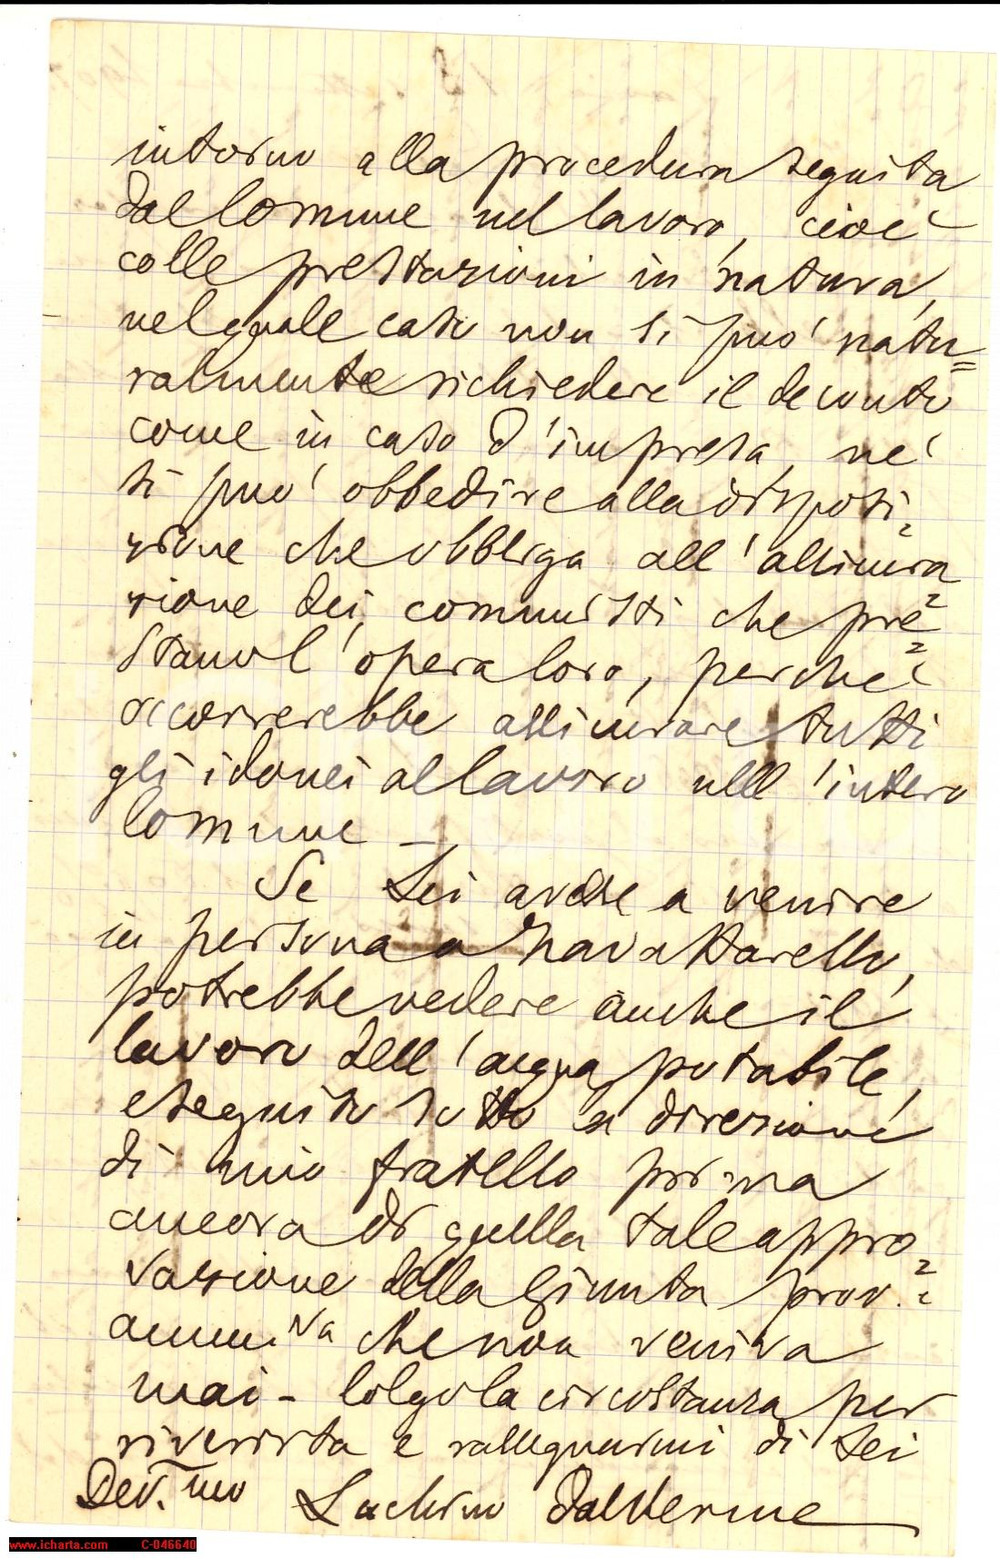 intorno alla procedura seguita
dal Comune nel lavoro, cioè
colle prestazioni in natura,
nel quale caso non si può natu=
ralmente richiedere il deconto
come in caso d'impresa, nè
si può obbedire alla disposi=
zione che obbliga all'assicura
zione dei comunisti che pre=
stano l'opera loro, perchè
occorrerebbe assicurare tutti
gli idonei al lavoro nell'intero
Comune –
Se Lei avesse a venire
in persona a Zavattarello,
potrebbe vedere anche il
lavoro dell'acqua potabile,
eseguito sotto la direzione
di mio fratello prima
ancora di quella tale appro=
vazione della Giunta prov.=
ammi.va che non veniva
mai – Colgo la circostanza per
riverirla e rassegnarmi di Lei
Dev.mo Luchino Dal Verme
www.icharta.com C-046640